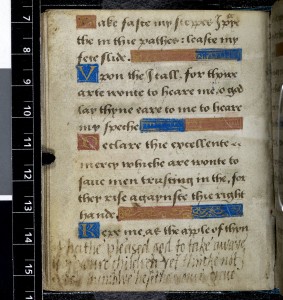 Make faste my steppes I pre
the in thie pathes: leaste my
fete slide.
Vpon the I call, for thou
arte wonte to heare me, o god
lay thyne eare to me to heare
my speche
Declare thie excellente
mercy whiche are wonte to
saue men trusting in the, for
they rise agaynste thie right
hande.
Kepe me, as the aple of thyn
hathe pleased god to take awaye
of youre children yet thincke not
7
8
9
10
11
12
13
14
15